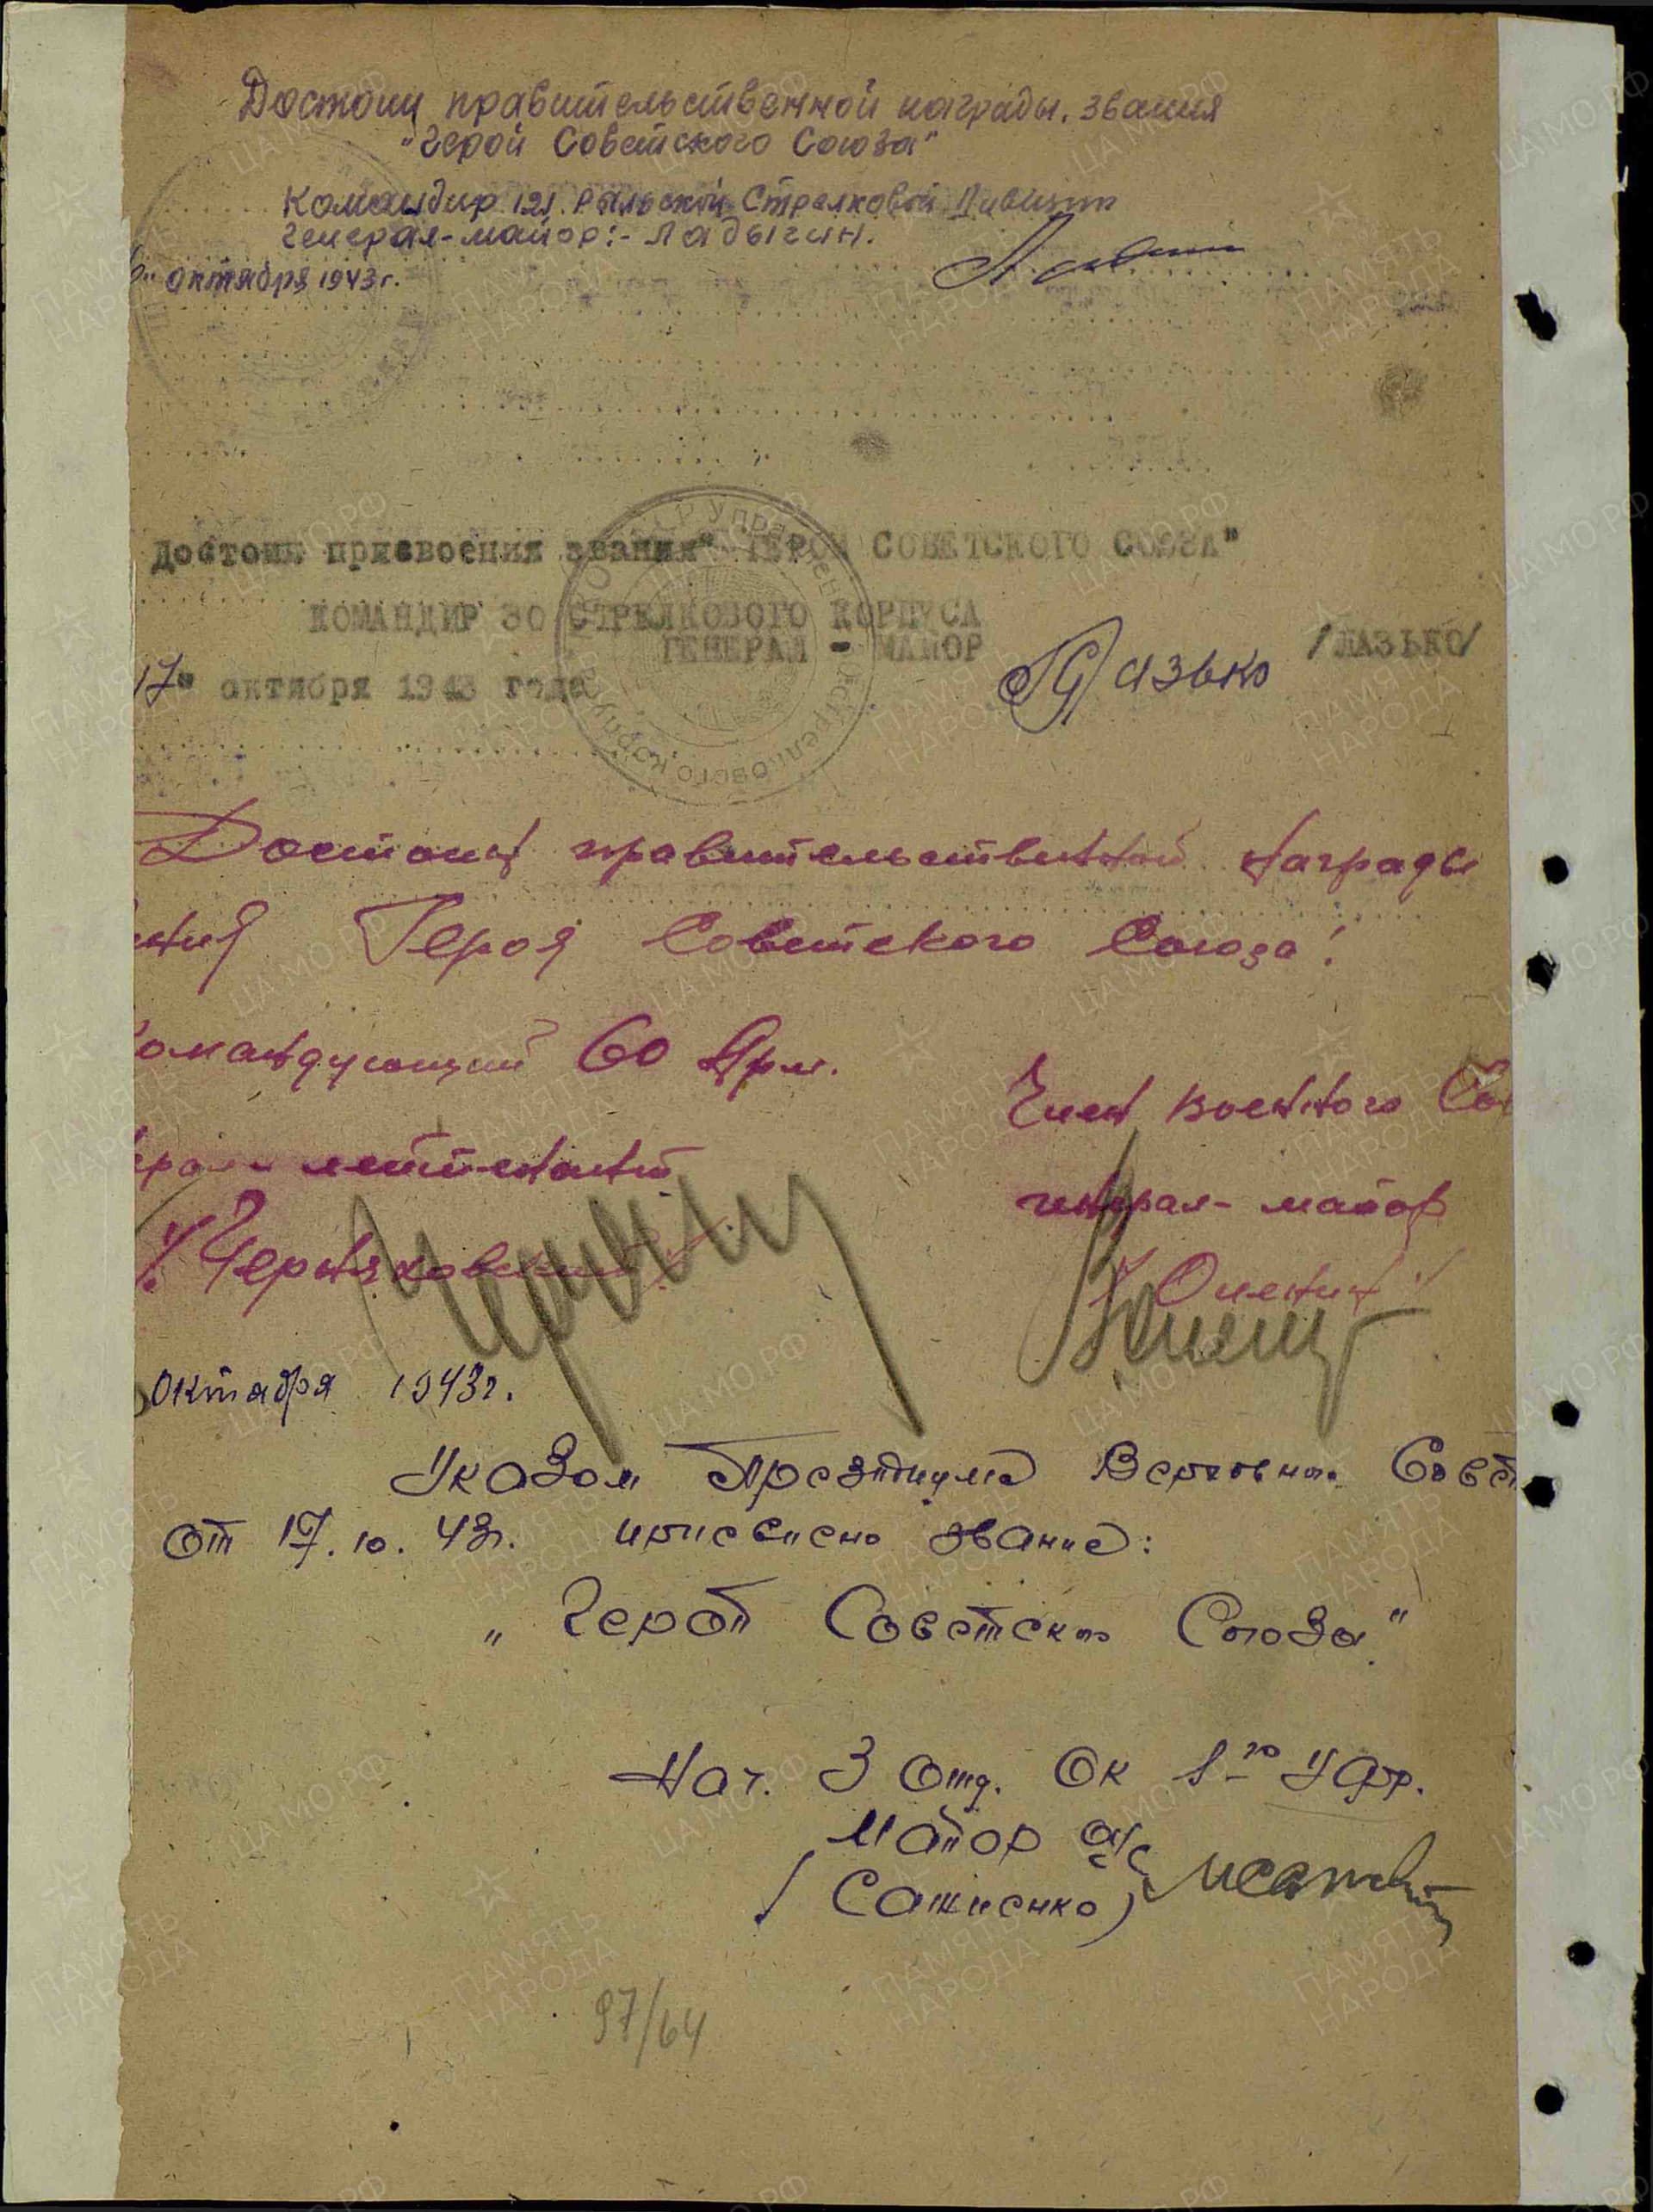 Достоин правительственной награды. звания
"Герой Советского Союза"
Командир 121 Рыльской Стрелковой Дивизии
генерал-майор:- Ладыгин.
" октября 1943 г.
Достоин присвоения звания "ГЕРОЙ СОВЕТСКОГО СОЮЗА"
КОМАНДИР 30 СТРЕЛКОВОГО КОРПУСА
ГЕНЕРАЛ - МАЙОР
Лазько /ЛАЗЬКО/
17" октября 1943 года
Достоин правительственной награды
ния Героя Советского Союза!
омандующий 60 Арм.
Член Военного Сов
ерал- лейтенант
генерал- майор
/Черняховский/
/Оленин/
Октября 1943г.
Указом Президиума Верховного Совет
от 17.10.43г. присвоено звание:
"Герой Советского Союза"
Нач. 3 отд. ОК 1го Укр.
Майор а/с
/Сатиенко)
97/64
ЦАМО.РФ
ПАМЯТЬ НАРОДА